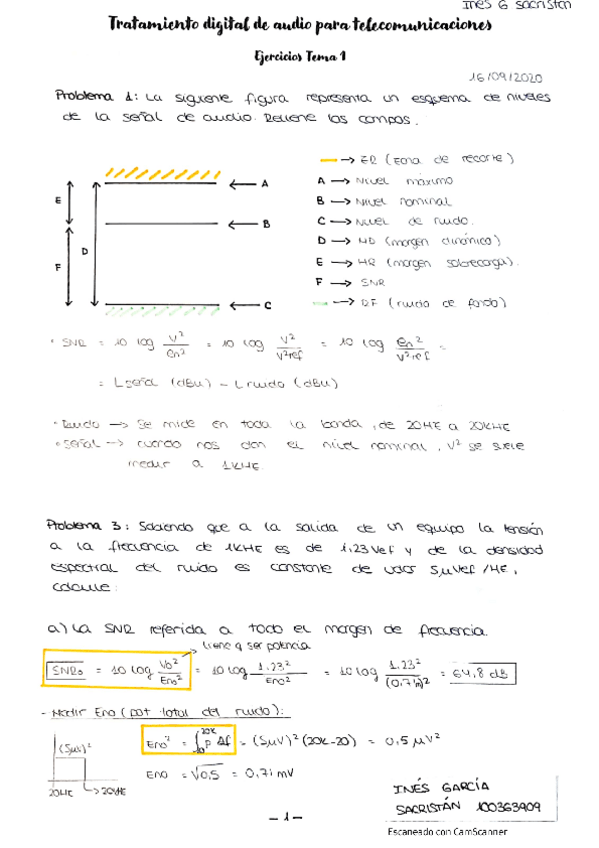 Inés G Sacristán
Tratamiento digital de audio para telecomunicaciones
Ejercicios Tema 1
16/09/2020
Problema 1: La siguiente figura representa un esquema de niveles
de la señal de audio. Rellene los campos.
→ ER (zona de recorte)
A → Nivel máximo
B → Nivel nominal
C → Nivel de ruido.
D → MD (margen dinámico)
E → MR (margen sobrecarga).
F → SNR
→ RF (ruido de fondo)
A
E
B
D
F
C
• SNR = 10 log V²/en² = 10 log V²/V²ref = 10 log en²/V²ref =
= Lseñal (dBu) - Lruido (dBu)
• Ruido → Se mide en toda la banda, de 20Hz a 20kHz
• Señal → cuando nos dan el nivel nominal, V² se suele
medir a 1kHz
Problema 3: Sabiendo que a la salida de un equipo la tensión
a la frecuencia de 1kHz es de 1,23 Vef y de la densidad
espectral del ruido es constante de valor 5μVef/Hz,
calcule:
a) La SNR referida a todo el margen de frecuencia.
tiene q ser potencia
SNRo = 10 log Vo²/Eno² = 10 log 1.23²/Eno² = 10 log 1.23²/(0,71m)² = 64,8 dB
- Medir Eno (pot total del ruido):
(5μV)²
20Hz
20kHz
Eno² = ∫ 20k 20 P Δf = (5μV)² (20k-20) = 0,5 μV²
Eno = √0,5 = 0,71 mV
INÉS GARCÍA
SACRISTÁN 100363909
- 1 -
Escaneado con CamScanner